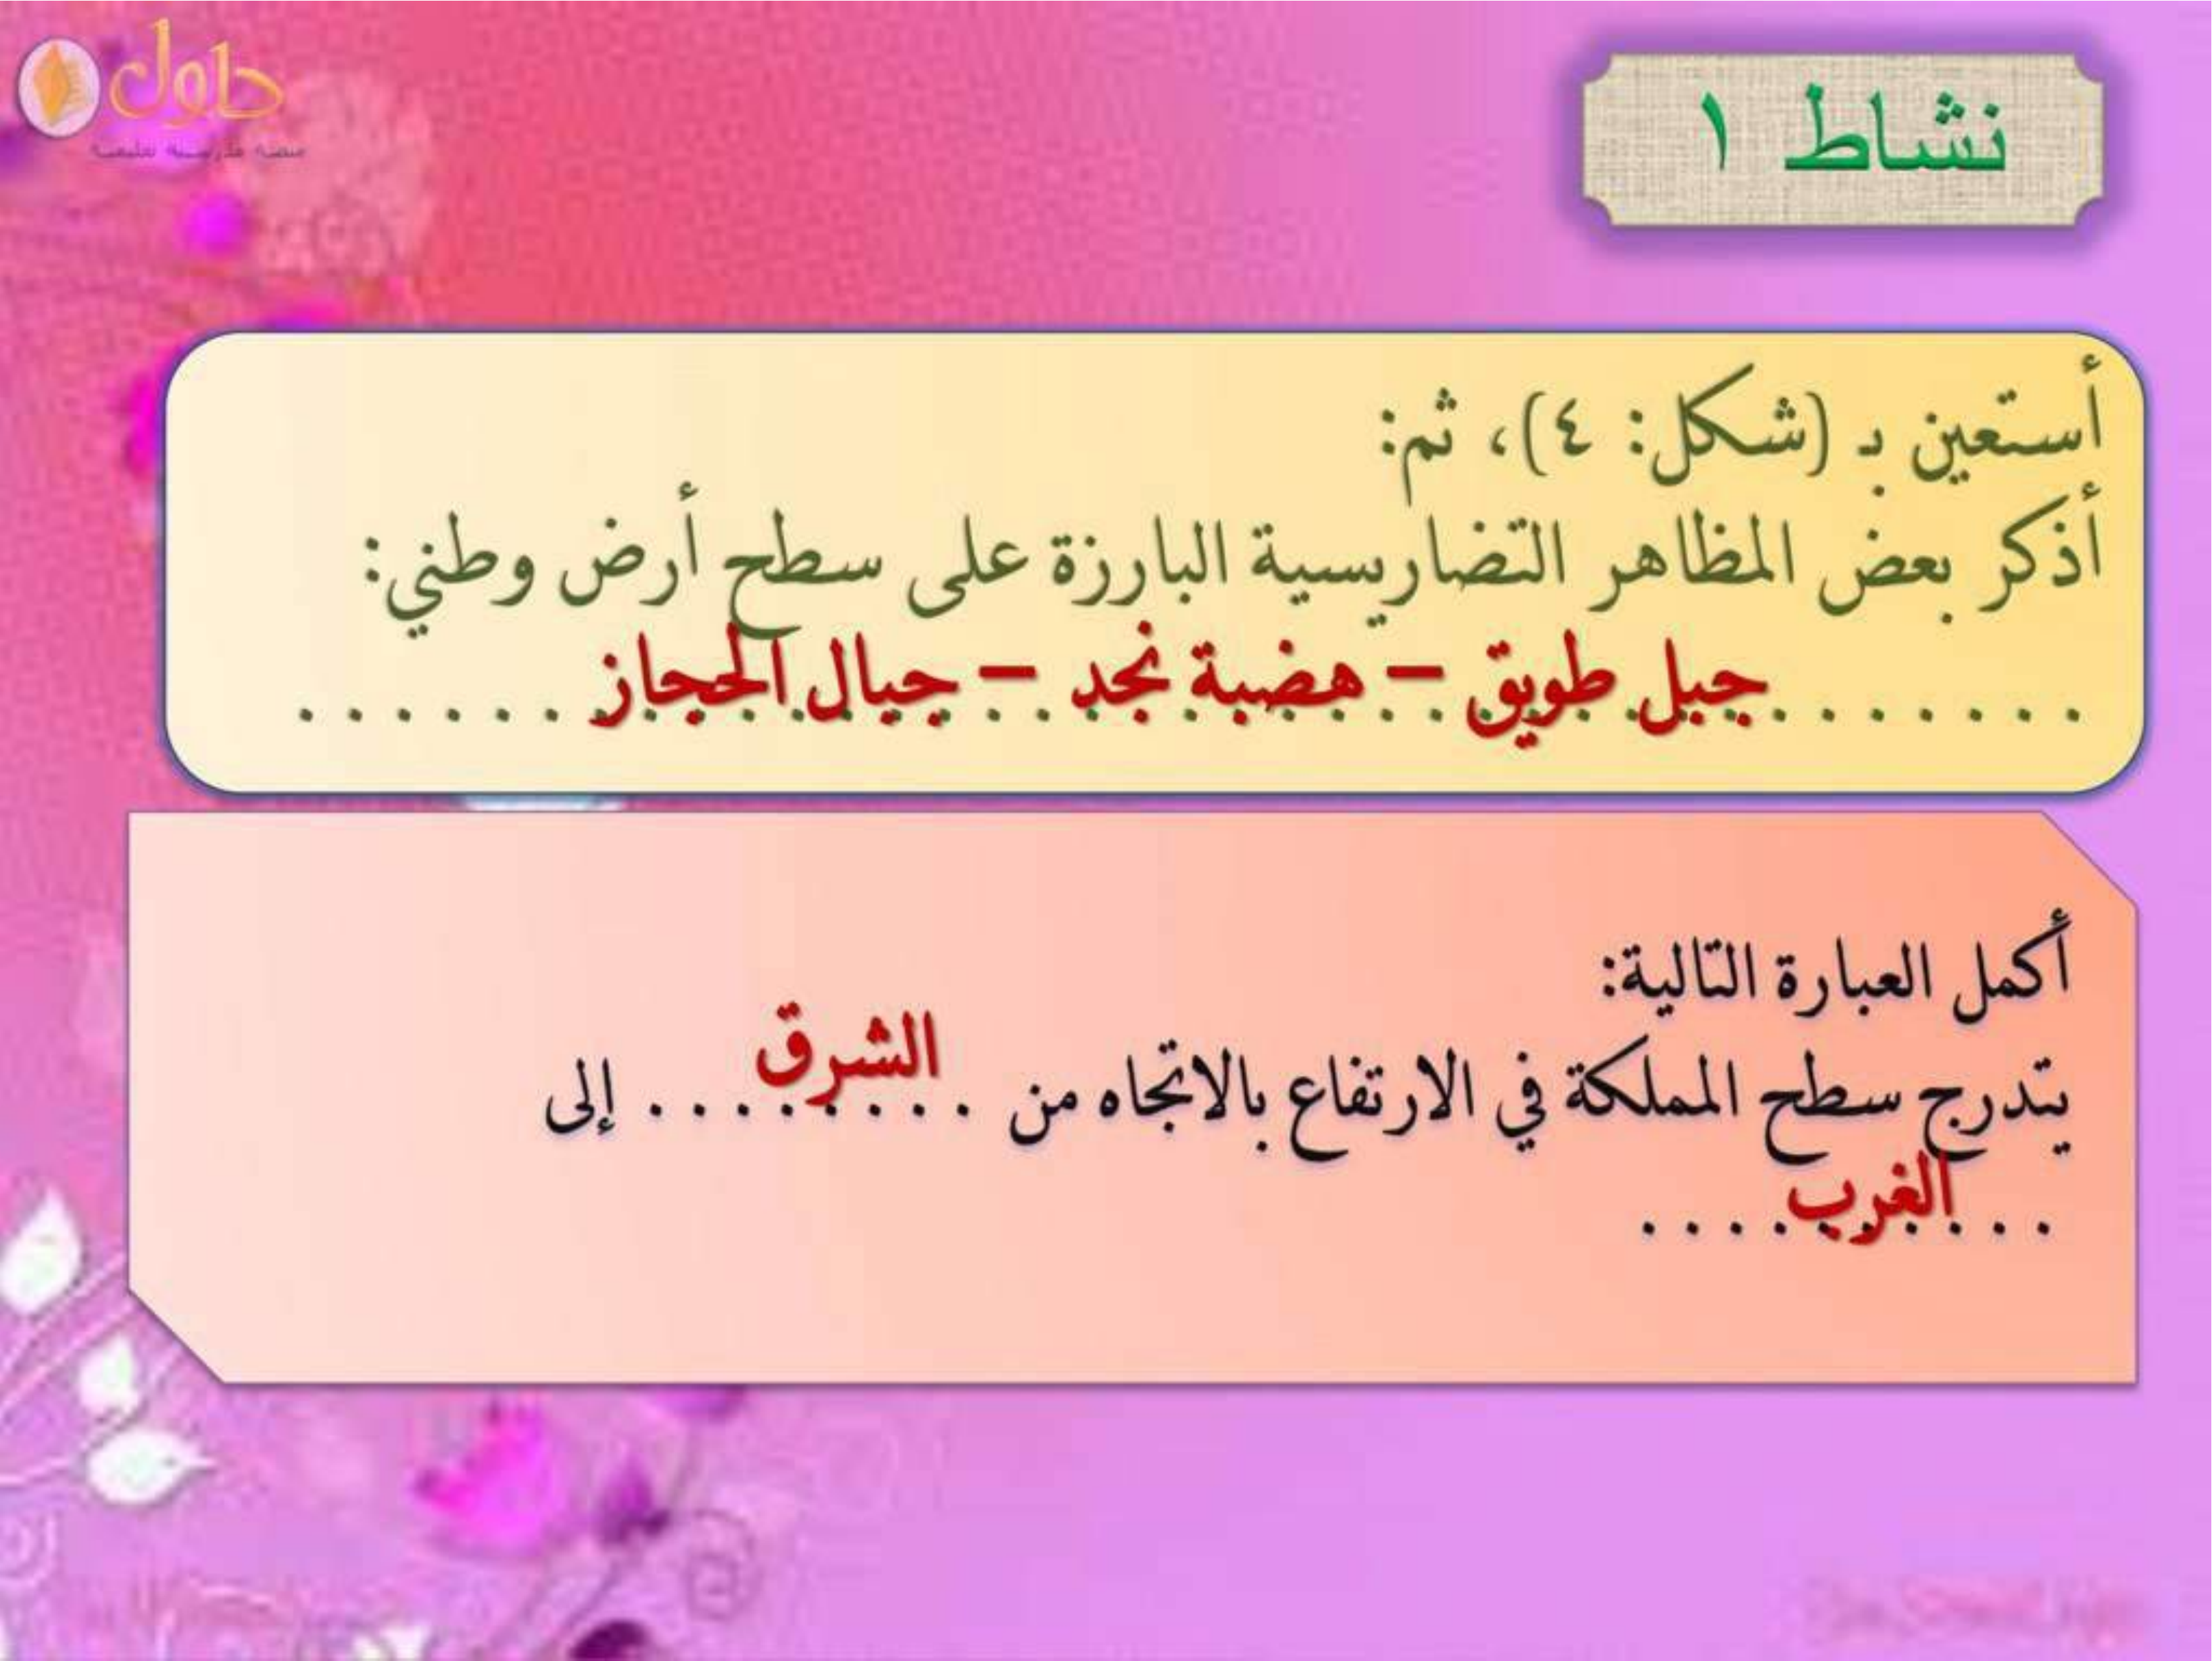 حلول
نشاط ١
أستعين بـ (شكل: ٤)، ثم:
أذكر بعض المظاهر التضاريسية البارزة على سطح أرض وطني:
. . . . . . . جبل طويق – هضبة نجد – جبال الحجاز . . . . . .
أكمل العبارة التالية:
يتدرج سطح المملكة في الارتفاع بالاتجاه من . . . الشرق . . . . إلى
. . . الغرب . . . .